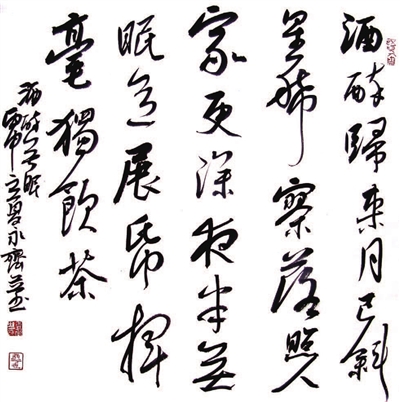 酒醉歸來月已斜
星稀寥落照人
家更深夜半無
眠意展帋揮
毫獨飲茶
酒醉無眠
永齊